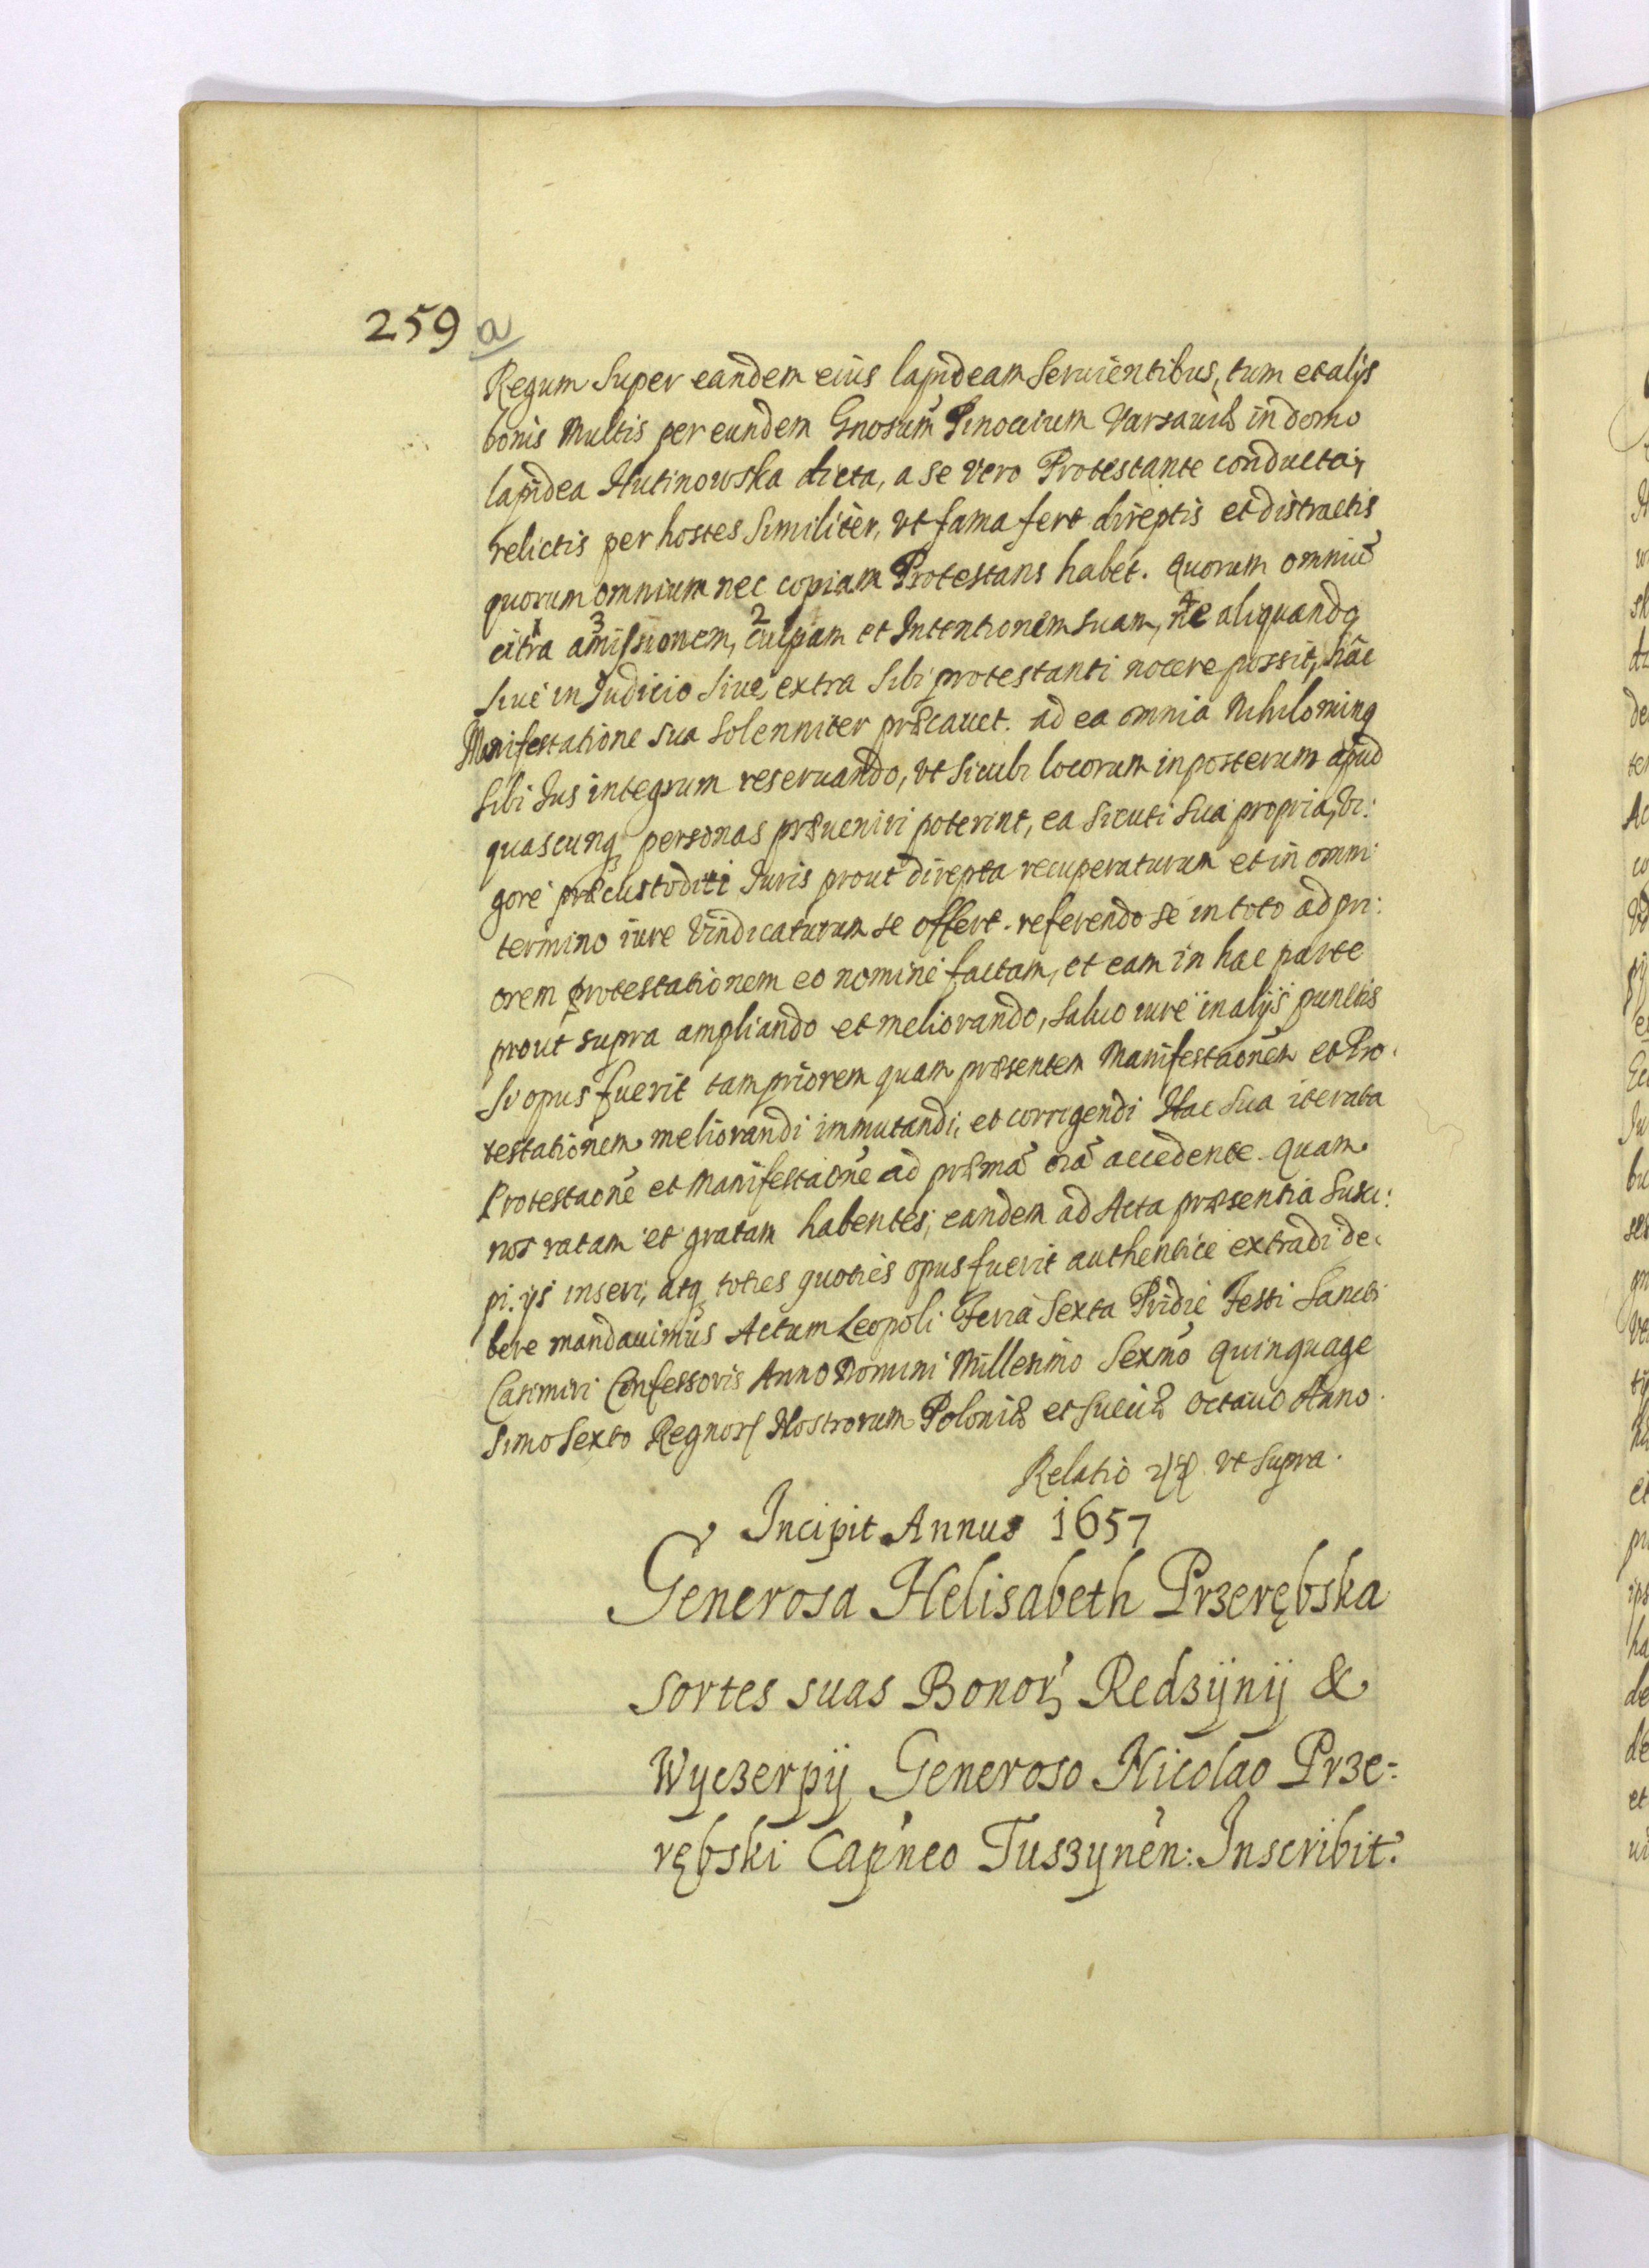 259 a
Regum super eandem eius lapideam seruientibus, tum et alijs
bonis Multis per eundem Gnosum Pinocium Varsauiæ in domo
lapidea Hutinowska dicta, a se vero Protestante conducta,
relictis per hostes similiter, vt fama fert direptis et distractis
quorum omnium nec copiam Protestans habet. Quorum omniũ
citra amissionem, culpam et Intentionem suam, ne aliquandoq
siue in Judicio siue extra sibi protestanti nocere possit, hãc
Manifestatione sua solenniter præcauet. ad ea omnia Nihilominq
sibi Jus integrum reseruando, vt sicubi locorum inposterum apud
quascunq personas præueniri poterint, ea sicuti sua propria, vi:
gore præcustoditi Juris prout direpta recuperaturum et in omni
termino iure vindicaturum se offert. referendo se in toto ad pri:
orem protestationem eo nomine factam, et eam in hac parte
prout supra ampliando et meliorando, saluo iure in alijs punctis
si opus fuerit tam priorem quam præsentem Manifestaonem et Pro
testationem meliorandi immutandi, et corrigendi Hac sua iterata
Protestaone et Manifestaone ad præmã oiã accedente. quam
nos ratam et gratam habentes, eandem ad Acta præsentia susci:
pi. ijs inseri, atq toties quoties opus fuerit authentice extradi de
bere mandauimus Actum Leopoli Feria Sexta Pridie Festi Sancti
Casimiri Confessoris Anno Domini Millesimo Sexmo Quinquage
simo sexto Regnor Nostrorum Poloniæ et Sueciæ octauo Anno.
Relatio vt supra.
Incipit Annus 1657
Generosa Helisabeth Przerębska
sortes suas Bonor Redzÿnÿ &
Wyczerpÿ Generoso Nicolao Prze=
rębski Capneo Tuszynen: Inscribit.